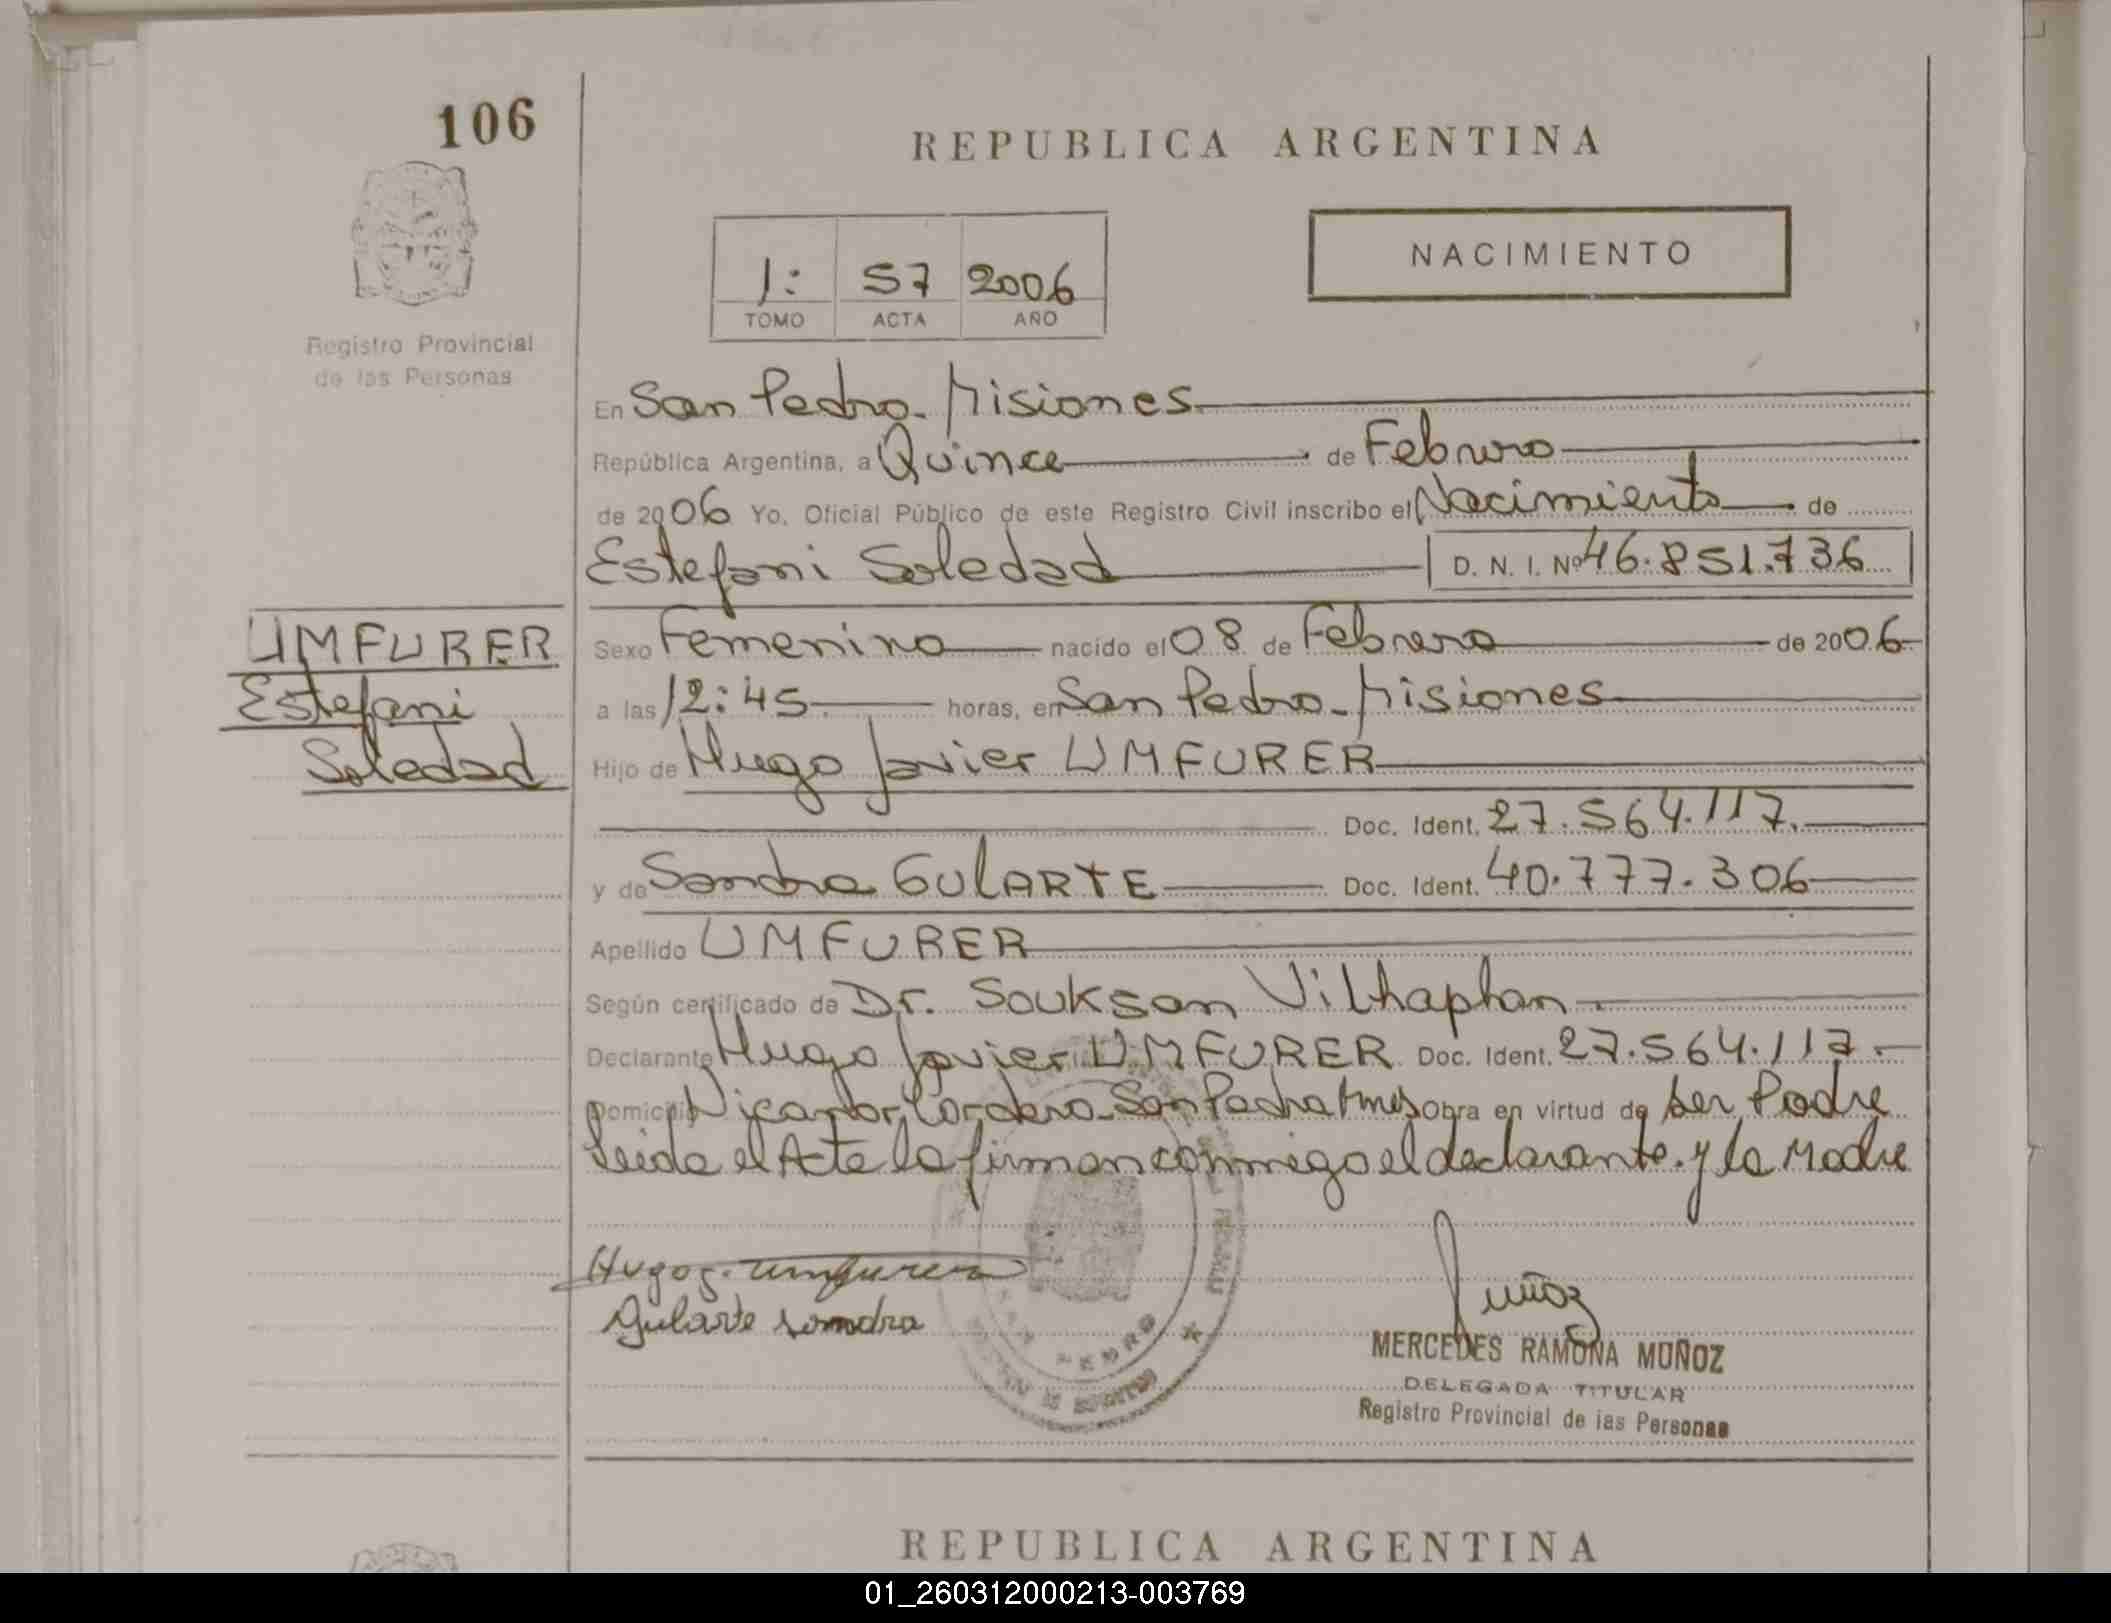 106
REPUBLICA ARGENTINA
NACIMIENTO
1: 57 2006
TOMO ACTA AÑO
Registro Provincial
de las Personas
En San Pedro - Misiones
República Argentina, a Quince de Febrero
de 2006 Yo, Oficial Público de este Registro Civil inscribo el Nacimiento de
Estefani Soledad D. N. I. Nº 46.851.736
UMFURER
Estefani
Soledad
Sexo Femenino nacido el 08 de Febrero de 2006
a las 12:45 horas, en San Pedro - Misiones
Hijo de Hugo Javier UMFURER
Doc. Ident. 27.564.117.
y de Sandra GULARTE Doc. Ident. 40.777.306
Apellido UMFURER
Según certificado de Dr. Souksan Vilhaphan
Declarante Hugo Javier UMFURER Doc. Ident. 27.564.117.
Domicilio Nicanor Cordero - San Pedro Mnes Obra en virtud de ser Padre
Leida el Acta la firman conmigo el declarante y la Madre
Hugo J. Umfurer
Gularte Sandra
SAN PEDRO
Muñoz
MERCEDES RAMONA MUÑOZ
DELEGADA TITULAR
Registro Provincial de las Personas
REPUBLICA ARGENTINA
01_260312000213-003769